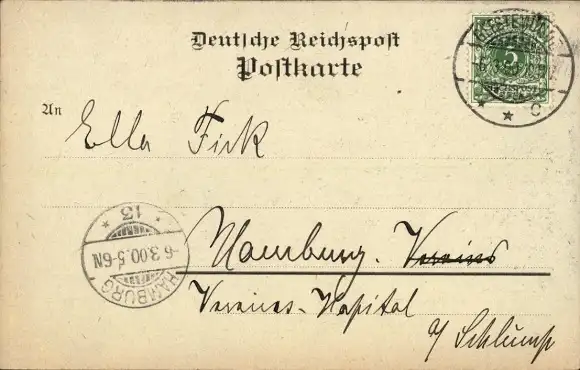 Deutsche Reichspost
Postkarte
An
Ella Fick
Hamburg. Vereins
Vereins-Hospital
a/ Schlump
GEESTEMÜNDE
* * c
5
REICHSPOST
HAMBURG
-6.3.00.5-6N
* 13 *